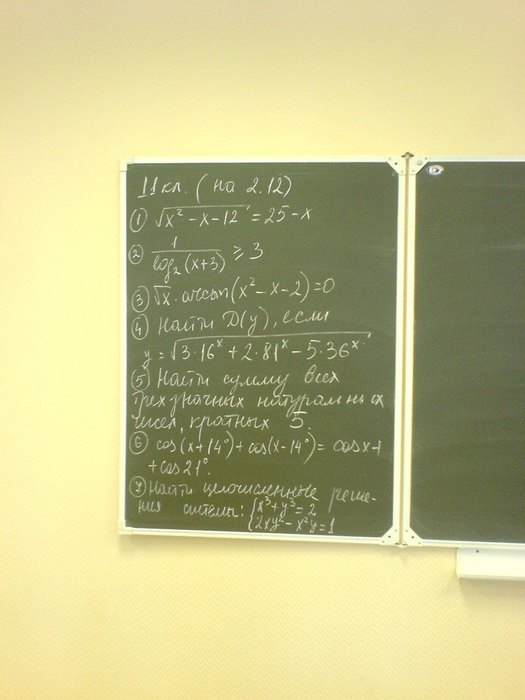 11 кл. (на 2.12)
① √x² - x - 12 = 25 - x
② 1/log₂(x+3) ≥ 3
③ √x · arcsin(x² - x - 2) = 0
④ Найти D(y), если
y = √3·16ˣ + 2·81ˣ - 5·36ˣ
⑤ Найти сумму всех
трехзначных натуральных
чисел, кратных 5.
⑥ cos(x+14°) + cos(x-14°) = cos x +
+ cos 21°.
⑦ Найти целочисленные реше-
ния системы: { x³ + y³ = 2
{ 2xy² - x²y = 1